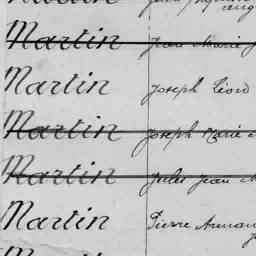 Martin Jean Marie
Martin Joseph Léon
Martin Joseph Marie
Martin Jules Jean
Martin Pierre